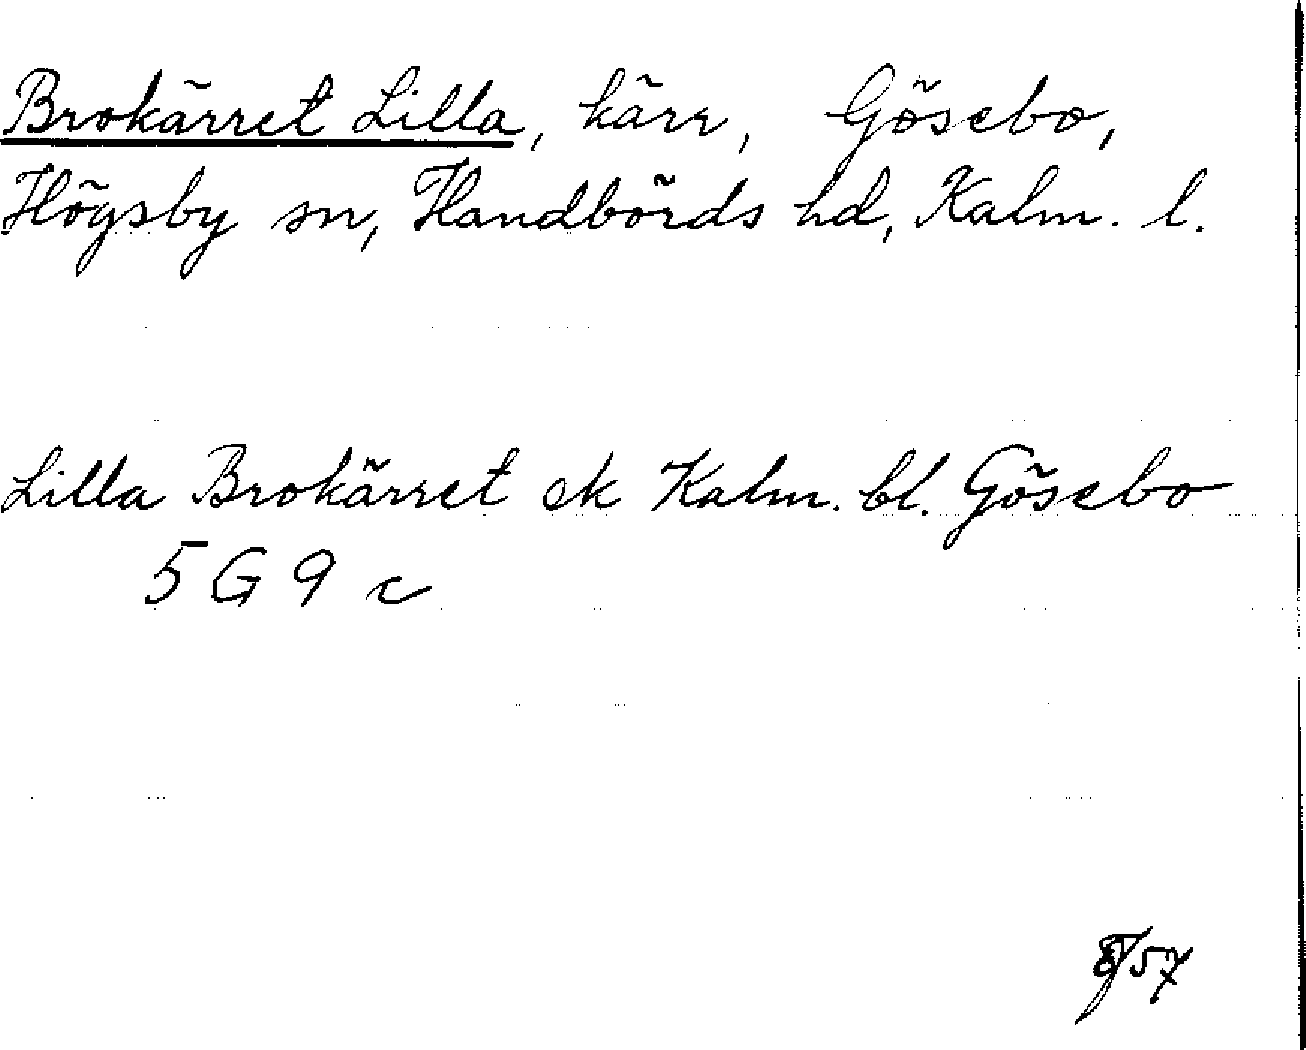 Brokärret Lilla, kärr, Gösebo,
Högsby sn, Handbörds hd, Kalm. l.
Lilla Brokärret ek Kalm. bl. Gösebo
5 G 9 c
8/57